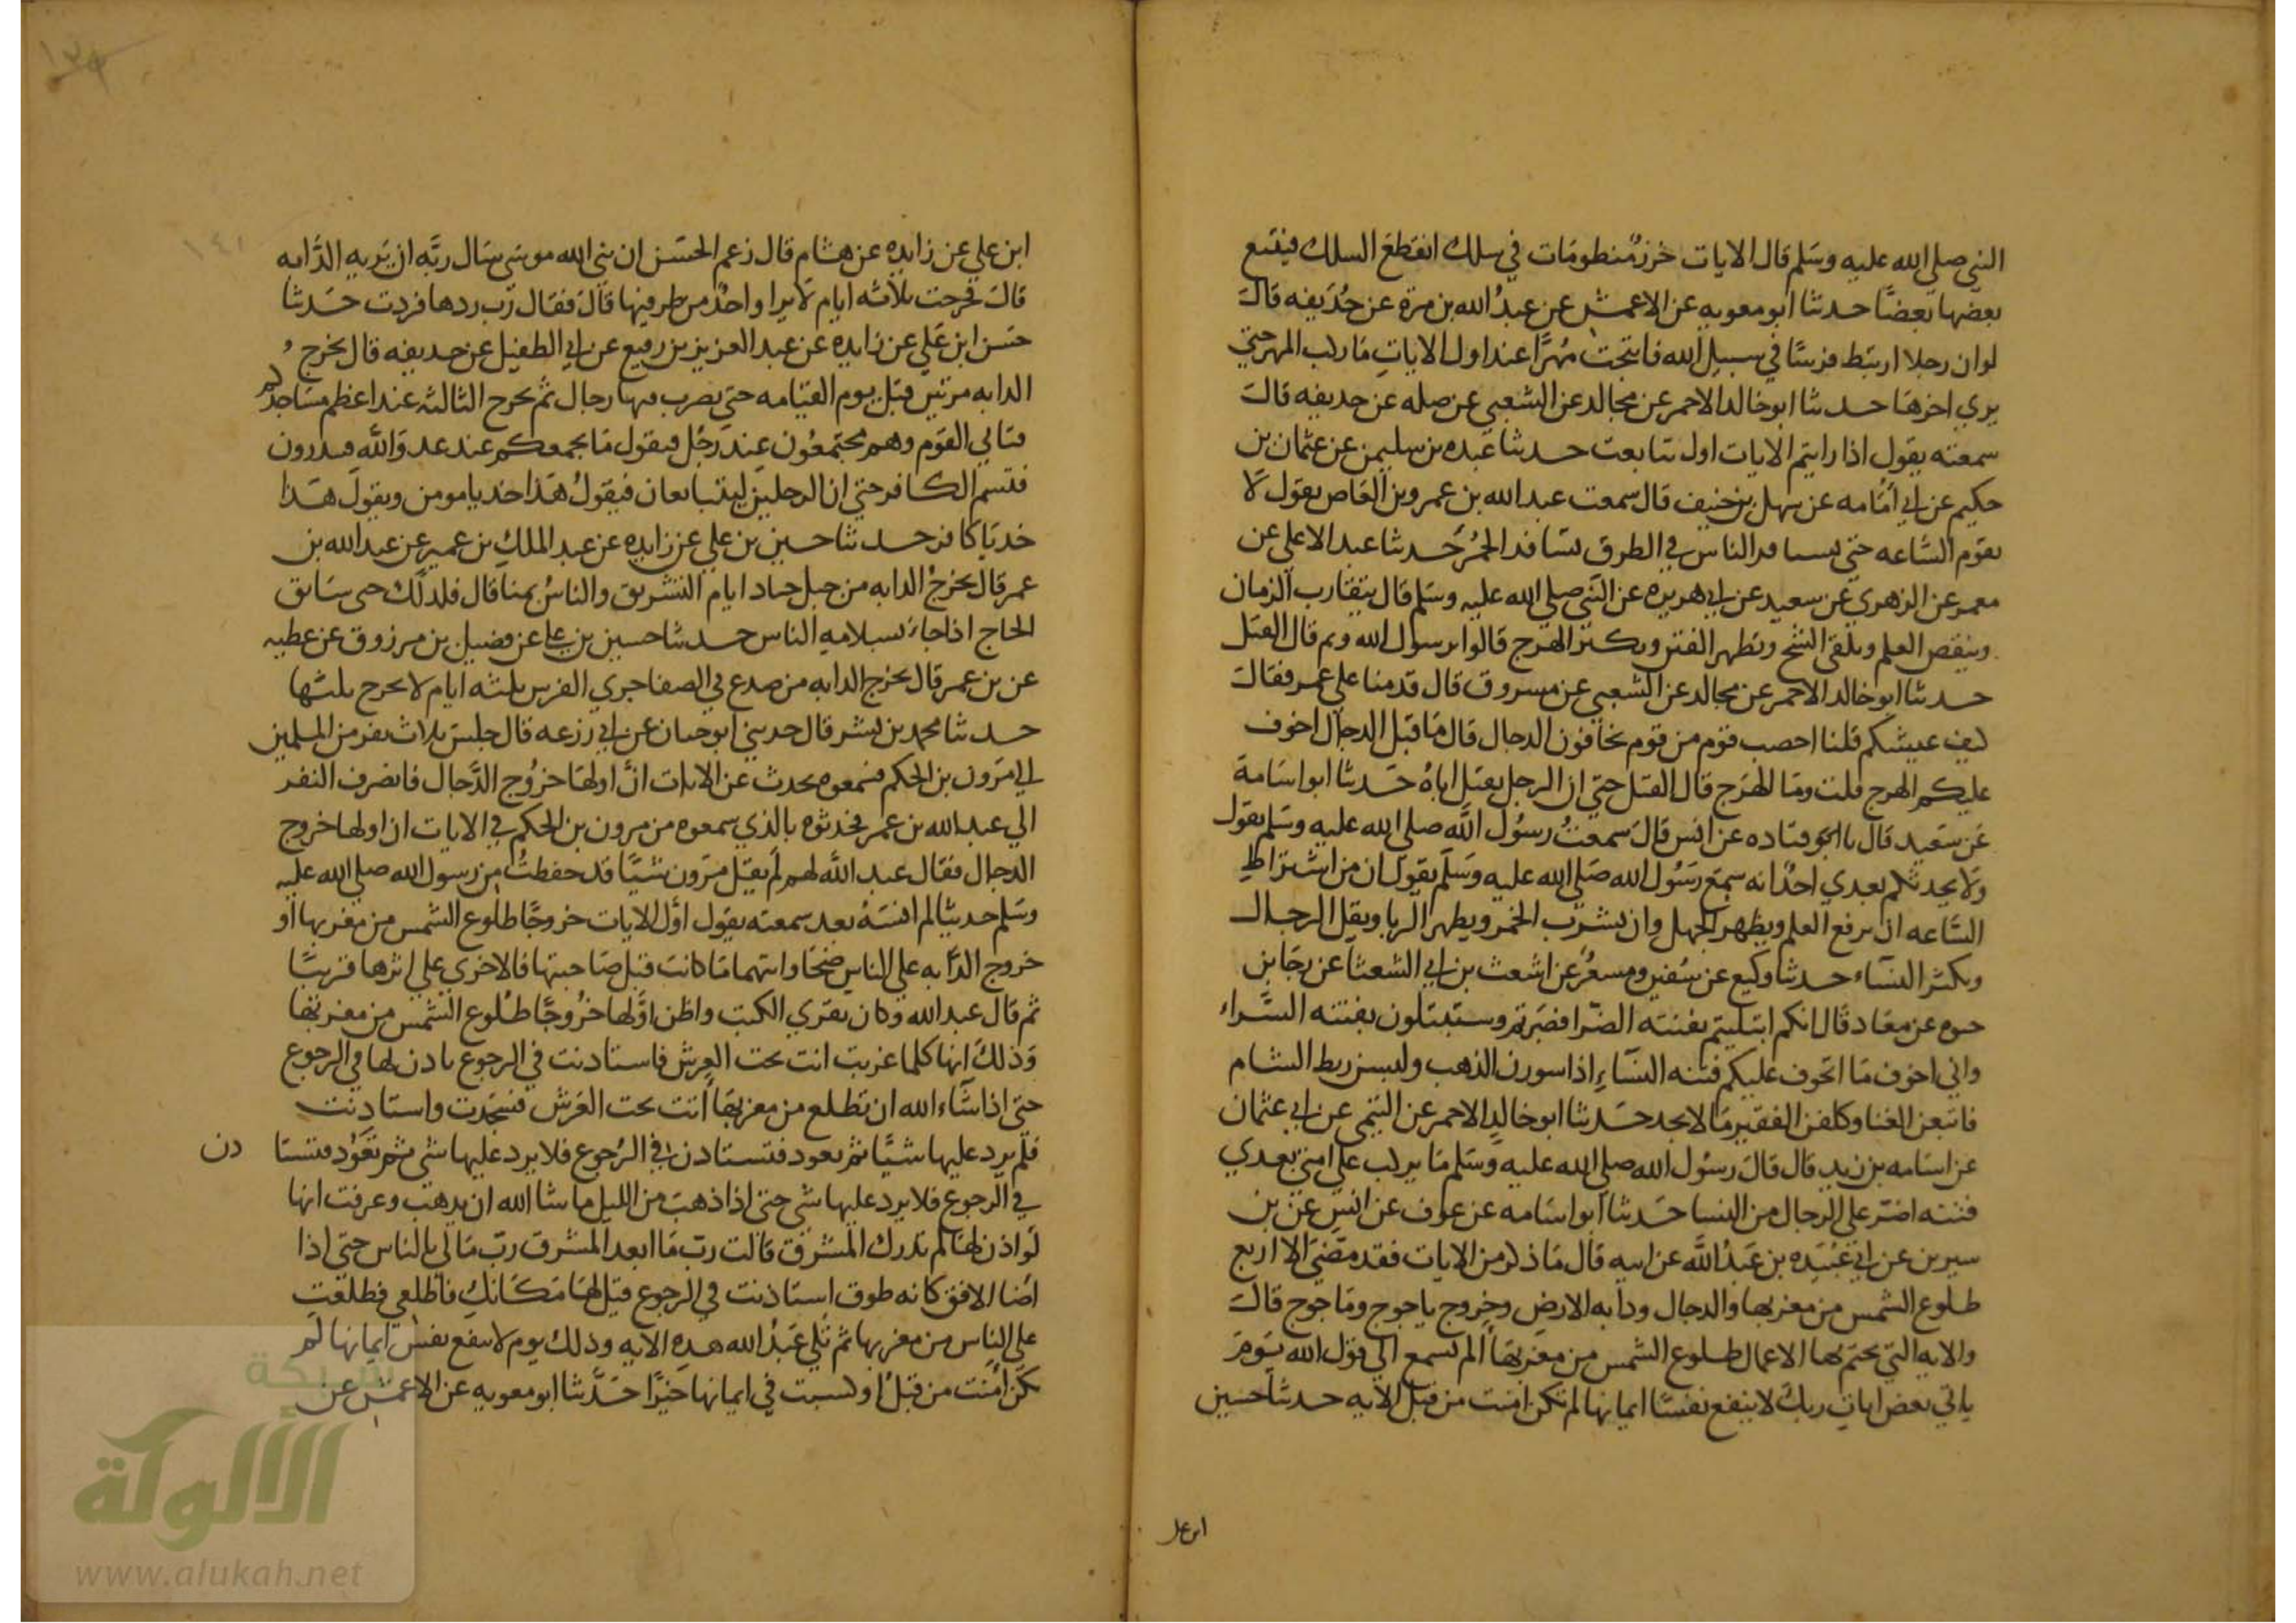 النبي صلى الله عليه وسلم قال الايات خرز منظومات في سلك انقطع السلك فيتبع
بعضها بعضا حدثنا ابو معويه عن الاعمش عن عبد الله بن مرة عن حذيفه قال
لو ان رجلا ارتبط فرسا في سبيل الله فانتجت مهرا عند اول الايات ما ركب المهر حتي
يري اخرها حدثنا ابو خالد الاحمر عن مجالد عن الشعبي عن صله عن حذيفه قال
سمعته يقول اذا رايتم الايات اول تتابعت حدثنا عبده بن سليمن عن عثمان بن
حكيم عن ابي امامه عن سهل بن حنيف قال سمعت عبد الله بن عمرو بن العاص يقول لا
تقوم الساعه حتي يتسافد الناس في الطرق تسافد الحمر حدثنا عبد الاعلي عن
معمر عن الزهري عن سعيد عن ابي هريره عن النبي صلي الله عليه وسلم قال يتقارب الزمان
وينقص العلم ويلقي الشح وتظهر الفتن ويكثر الهرج قالوا يرسول الله ويم قال القتل
حدثنا ابو خالد الاحمر عن مجالد عن الشعبي عن مسروق قال قدمنا علي عمر فقال
كيف عيشكم قلنا اخصب قوم من قوم يخافون الدجال قال ما قبل الدجال اخوف
عليكم الهرج قلت وما الهرج قال القتل حتي ان الرجل يقتل اباه حدثنا ابو اسامة
عن سعيد قال قتاده عن انس قال سمعت رسول الله صلي الله عليه وسلم يقول
ولا يحدثكم بعدي احد انه سمع رسول الله صلي الله عليه وسلم يقول ان من اشتراط
الساعه ان يرفع العلم ويظهر الجهل وان يشرب الخمر ويظهر الربا ويقل الرجال
ويكثر النساء حدثنا وكيع عن سفين ومسعر عن اشعث بن ابي الشعثا عن رجا بن
حيوه عن معاد قال انكم ابتليتم بفتنه الضرا فصبرتم وستبتلون بفتنه السراء
واني اخوف ما اتخوف عليكم فتنه النساء اذا سورن الذهب ولبسن ريط الشام
فاتبعن الغنا وكلفن الفقير ما لا يجد حدثنا ابو خالد الاحمر عن التيمي عن ابي عثمان
عن اسامه بن زيد قال قال رسول الله صلي الله عليه وسلم ما يركب علي امتي بعدي
فتنه اضر علي الرجال من النسا حدثنا ابو اسامه عن عوف عن انس عن بن
سيرين عن ابي عبيده بن عبد الله عن ابيه قال ما ذكر من الايات فقد مضي الا اربع
طلوع الشمس من مغربها والدجال ودابه الارض وخروج ياجوج وماجوج قال
والايه التي يختم بها الاعمال طلوع الشمس من مغربها الم تسمع الي قول الله يوم
ياتي بعض ايات ربك لا ينفع نفسا ايمانها لم تكن امنت من قبل الايه حدثنا حسين
ابن علي
١٣٩
١٤١
ابن علي عن زايده عن هشام قال زعم الحسن ان نبي الله موسي سال ربه ان يريه الدابه
قال فخرجت ثلاثه ايام لا يرا واحد من طرفيها قال فقال رب ردها فردت حدثنا
حسن ابن علي عن زايده عن عبد العزيز بن رفيع عن ابي الطفيل عن حذيفه قال تخرج
الدابه مرتين قبل يوم القيامه حتي يضرب فيها رجال ثم تخرج الثالثه عند اعظم مساجدكم
فتاتي القوم وهم مجتمعون عند رجل فتقول ما يجمعكم عند عدو الله فيبدرون
فتسم الكافر حتي ان الرجلين ليتبايعان فيقول هذا خذ يا مومن ويقول هذا
خذ يا كافر حدثنا حسين بن علي عن زايده عن عبد الملك بن عمير عن عبد الله بن
عمر قال يخرج الدابه من جبل جياد ايام التشريق والناس بمنا قال فلذلك حي سابق
الحاج اذا جاء بسلامه الناس حدثنا حسين بن علي عن فضيل بن مرزوق عن عطيه
عن بن عمر قال يخرج الدابه من صدع في الصفا جري الفرس ثلثه ايام لا يخرج ثلثها
حدثنا محمد بن بشر قال حدثني ابو حيان عن ابي زرعه قال جلس ثلاث نفر من المسلمين
الي مرون بن الحكم فسمعوه يحدث عن الايات ان اولها خروج الدجال فانصرف النفر
الي عبد الله بن عمر فحدثوه بالذي سمعوه من مرون بن الحكم في الايات ان اولها خروج
الدجال فقال عبد الله لهم لم يقل مرون شيا قد حفظت من رسول الله صلي الله عليه
وسلم حديثا لم انسه بعد سمعته يقول اول الايات خروجا طلوع الشمس من مغربها او
خروج الدابه علي الناس ضحا وايتهما ما كانت قبل صاحبتها فالاخري علي اثرها قريبا
ثم قال عبد الله وكان يقري الكتب واظن اولها خروجا طلوع الشمس من مغربها
وذلك انها كلما غربت اتت تحت العرش فاستاذنت في الرجوع ياذن لها في الرجوع
حتي اذا شاء الله ان تطلع من مغربها اتت تحت العرش فسجدت واستاذنت
فلم يرد عليها شيا ثم تعود فتستاذن في الرجوع فلا يرد عليها شي ثم تعود فتستا دن
في الرجوع فلا يرد عليها شي حتي اذا ذهب من الليل ما شا الله ان يذهب وعرفت انها
لو اذن لها لم تدرك المشرق قالت رب ما ابعد المشرق رب ما لي بالناس حتي اذا
اضا الافق كانه طوق استاذنت في الرجوع قيل لها مكانك فاطلعي فطلعت
علي الناس من مغربها ثم تلي عبد الله هذه الايه وذلك يوم لا ينفع نفس ايمانها لم
تكن امنت من قبل او كسبت في ايمانها خيرا حدثنا ابو معويه عن الاعمش عن
شبكة
الألوكة
www.alukah.net